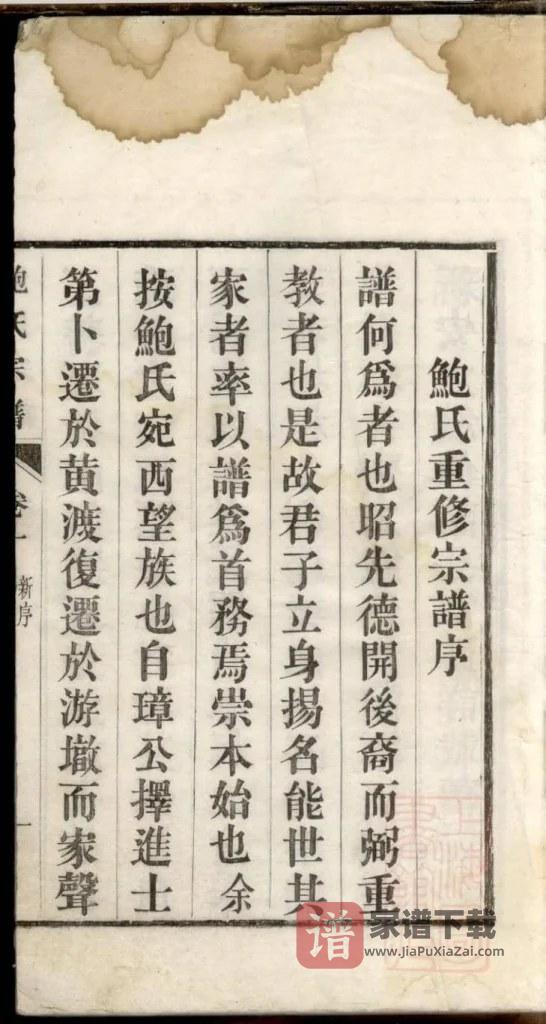 鮑氏重修宗譜序
譜何爲者也昭先德開後裔而弼重
教者也是故君子立身揚名能世其
家者率以譜爲首務焉崇本始也余
按鮑氏宛西望族也自璋公擇進士
第卜遷於黄渡復遷於游墩而家聲
鮑氏宗譜
卷一
新序
一
谱
家谱下载
www.JiaPuXiaZai.com